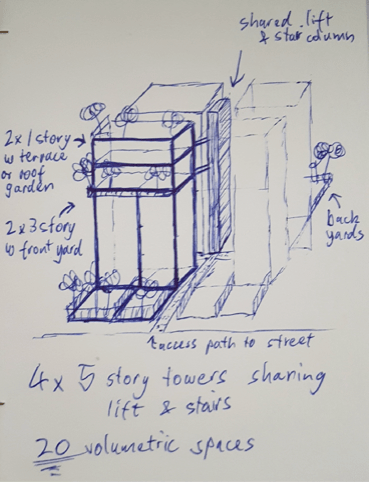 shared lift
& stair column
2x1 story
w terrace
or roof
garden
2x3 story
w front yard
back
yards
access path to street
4 x 5 story towers sharing
lift & stairs
20 volumetric spaces